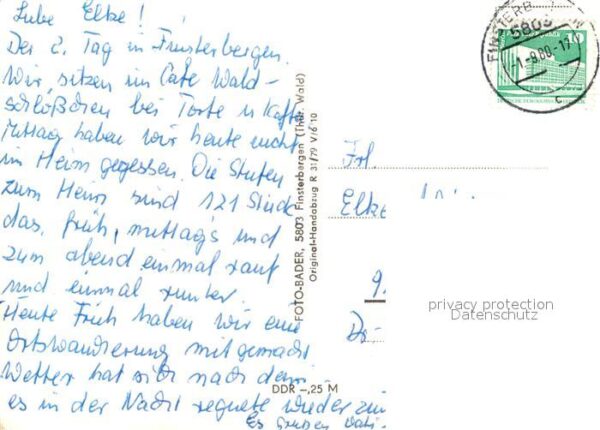 Liebe Elke!
Der 2. Tag in Finsterbergen.
Wir sitzen im Cafe Wald-
schlößchen bei Torte u Kaffe
Mittag haben wir heute nicht
im Heim gegessen. Die Stufen
zum Heim sind 121 Stück
das, früh, mittag's und
zum abend einmal rauf
und einmal runter.
Heute Früh haben wir eine
Ortswanderung mitgemacht
Wetter hat sich nach dem
es in der Nacht regnete wieder
Es grüßen Vati
FOTO-BADER, 5803 Finsterbergen (Thür. Wald)
Original-Handabzug R 31/79 V/6/10
DDR -,25 M
5803
-1.-9.80-17
c
10
Frl
Elke
9.
privacy protection
Datenschutz